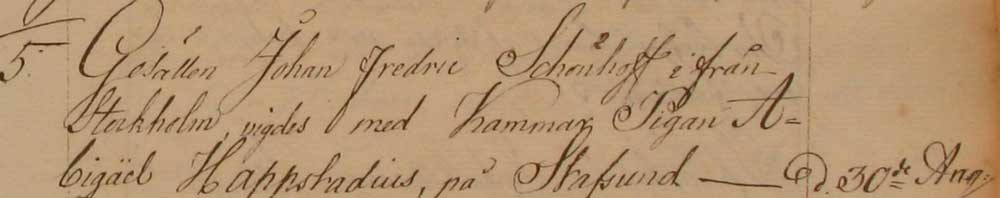 5. Gesällen Johan Fredric Schönhoff ifrån
Stockholm, vigdes med Kammar Pigan A=
bigäel Happstadius, på Stafsund — d. 30de Aug: